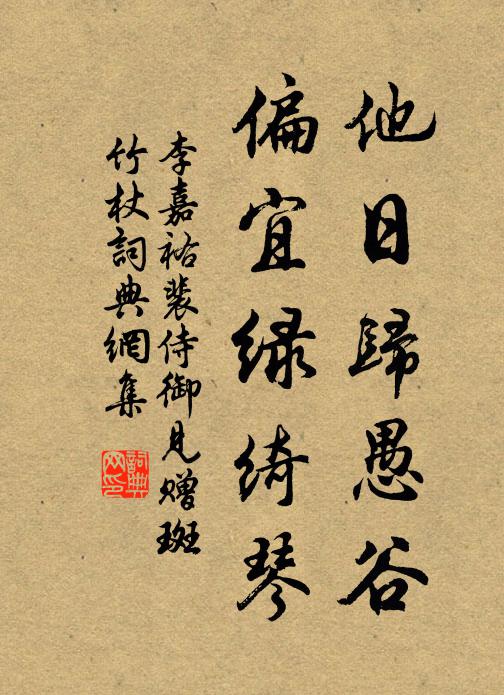 他日歸愚谷
偏宜緑綺琴
李嘉祐裴侍御見贈斑
竹杖詞典網集
詞典
网印